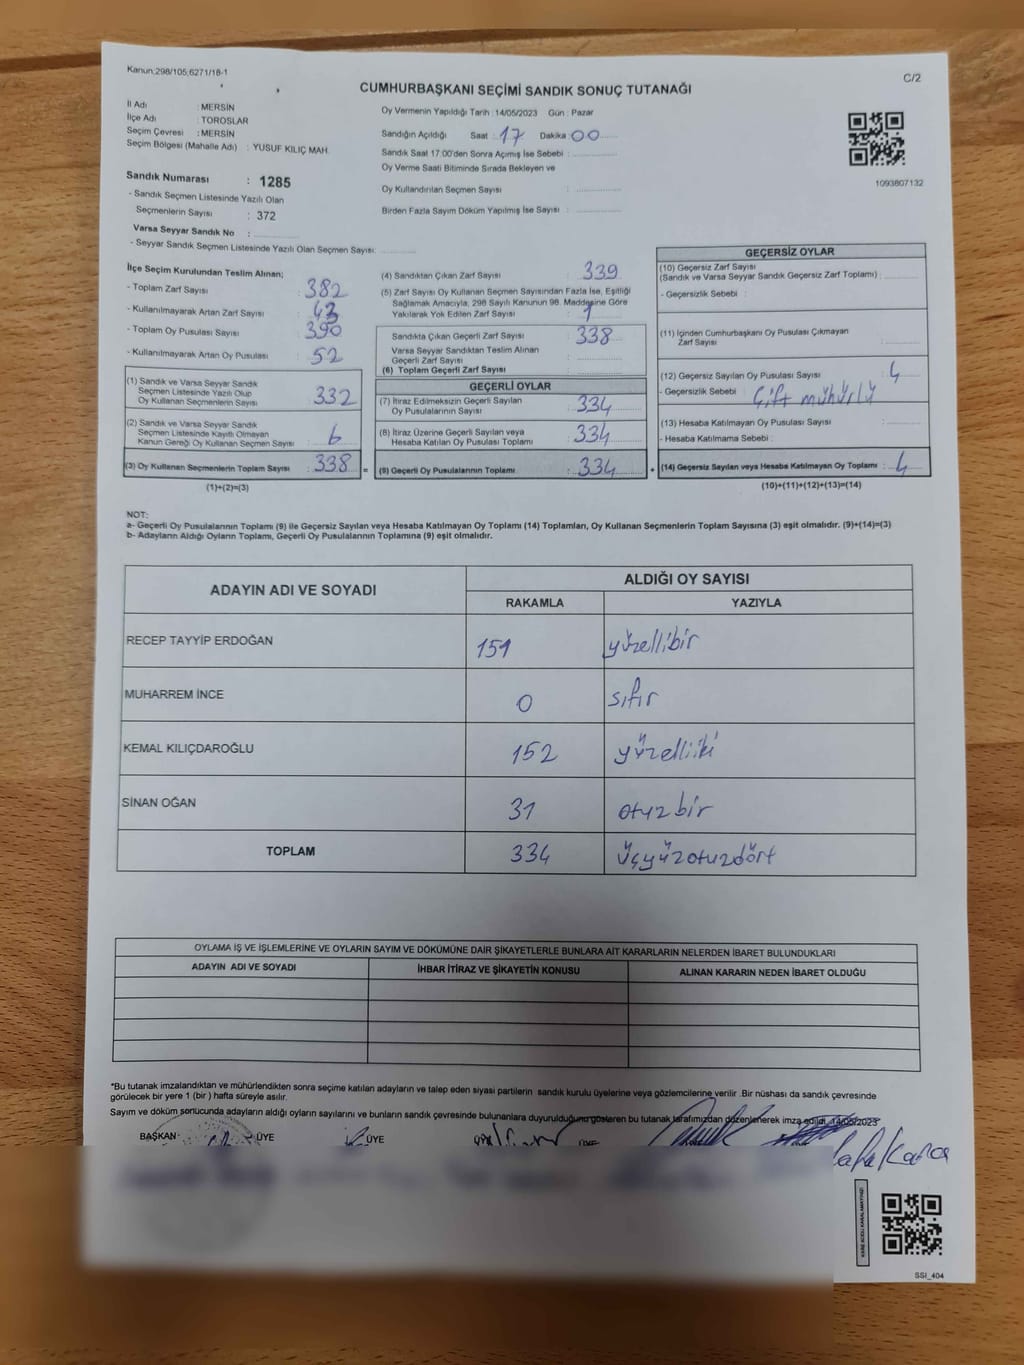 Kanun;298/105;6271/18-1
C/2
CUMHURBAŞKANI SEÇİMİ SANDIK SONUÇ TUTANAĞI
İl Adı : MERSİN
İlçe Adı : TOROSLAR
Seçim Çevresi : MERSİN
Seçim Bölgesi (Mahalle Adı) : YUSUF KILIÇ MAH.
Sandık Numarası : 1285
- Sandık Seçmen Listesinde Yazılı Olan
Seçmenlerin Sayısı : 372
Varsa Seyyar Sandık No :
- Seyyar Sandık Seçmen Listesinde Yazılı Olan Seçmen Sayısı:
Oy Vermenin Yapıldığı Tarih : 14/05/2023 Gün : Pazar
Sandığın Açıldığı Saat : 17 Dakika : 00
Sandık Saat 17:00'den Sonra Açımış İse Sebebi :
Oy Verme Saati Bitiminde Sırada Bekleyen ve
Oy Kullandırılan Seçmen Sayısı :
Birden Fazla Sayım Döküm Yapılmış İse Sayısı :
1093807132
İlçe Seçim Kurulundan Teslim Alınan;
- Toplam Zarf Sayısı : 382
- Kullanılmayarak Artan Zarf Sayısı : 43
- Toplam Oy Pusulası Sayısı : 390
- Kullanılmayarak Artan Oy Pusulası : 52
(1) Sandık ve Varsa Seyyar Sandık
Seçmen Listesinde Yazılı Olup
Oy Kullanan Seçmenlerin Sayısı : 332
(2) Sandık ve Varsa Seyyar Sandık
Seçmen Listesinde Kayıtlı Olmayan
Kanun Gereği Oy Kullanan Seçmen Sayısı : 6
(3) Oy Kullanan Seçmenlerin Toplam Sayısı : 338 =
(1)+(2)=(3)
(4) Sandıktan Çıkan Zarf Sayısı : 339
(5) Zarf Sayısı Oy Kullanan Seçmen Sayısından Fazla İse, Eşitliği
Sağlamak Amacıyla, 298 Sayılı Kanunun 98. Maddesine Göre
Yakılarak Yok Edilen Zarf Sayısı : 1
Sandıkta Çıkan Geçerli Zarf Sayısı : 338
Varsa Seyyar Sandıktan Teslim Alınan
Geçerli Zarf Sayısı :
(6) Toplam Geçerli Zarf Sayısı :
GEÇERLİ OYLAR
(7) İtiraz Edilmeksizin Geçerli Sayılan
Oy Pusulalarının Sayısı : 334
(8) İtiraz Üzerine Geçerli Sayılan veya
Hesaba Katılan Oy Pusulası Toplamı : 334
(9) Geçerli Oy Pusulalarının Toplamı : 334 +
GEÇERSİZ OYLAR
(10) Geçersiz Zarf Sayısı
(Sandık ve Varsa Seyyar Sandık Geçersiz Zarf Toplamı) :
- Geçersizlik Sebebi :
(11) İçinden Cumhurbaşkanı Oy Pusulası Çıkmayan
Zarf Sayısı :
(12) Geçersiz Sayılan Oy Pusulası Sayısı : 4
- Geçersizlik Sebebi : Çift mühürlü
(13) Hesaba Katılmayan Oy Pusulası Sayısı :
- Hesaba Katılmama Sebebi :
(14) Geçersiz Sayılan veya Hesaba Katılmayan Oy Toplamı : 4
(10)+(11)+(12)+(13)=(14)
NOT:
a- Geçerli Oy Pusulalarının Toplamı (9) ile Geçersiz Sayılan veya Hesaba Katılmayan Oy Toplamı (14) Toplamları, Oy Kullanan Seçmenlerin Toplam Sayısına (3) eşit olmalıdır. (9)+(14)=(3)
b- Adayların Aldığı Oyların Toplamı, Geçerli Oy Pusulalarının Toplamına (9) eşit olmalıdır.
ADAYIN ADI VE SOYADI
ALDIĞI OY SAYISI
RAKAMLA YAZIYLA
RECEP TAYYİP ERDOĞAN 151 yüzellibir
MUHARREM İNCE 0 sıfır
KEMAL KILIÇDAROĞLU 152 yüzelliiki
SİNAN OĞAN 31 otuzbir
TOPLAM 334 üçyüzotuzdört
OYLAMA İŞ VE İŞLEMLERİNE VE OYLARIN SAYIM VE DÖKÜMÜNE DAİR ŞİKAYETLERLE BUNLARA AİT KARARLARIN NELERDEN İBARET BULUNDUKLARI
ADAYIN ADI VE SOYADI İHBAR İTİRAZ VE ŞİKAYETİN KONUSU ALINAN KARARIN NEDEN İBARET OLDUĞU
*Bu tutanak imzalandıktan ve mühürlendikten sonra seçime katılan adayların ve talep eden siyasi partilerin sandık kurulu üyelerine veya gözlemcilerine verilir .Bir nüshası da sandık çevresinde
görülecek bir yere 1 (bir ) hafta süreyle asılır.
Sayım ve döküm sonucunda adayların aldığı oyların sayılarını ve bunların sandık çevresinde bulunanlara duyurulduğunu gösteren bu tutanak tarafımızdan düzenlenerek imza edildi. 14/05/2023
BAŞKAN ÜYE ÜYE
Kara
SSI_404